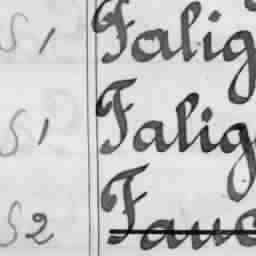 S1 Falig
S1 Falig
S2 Fauc